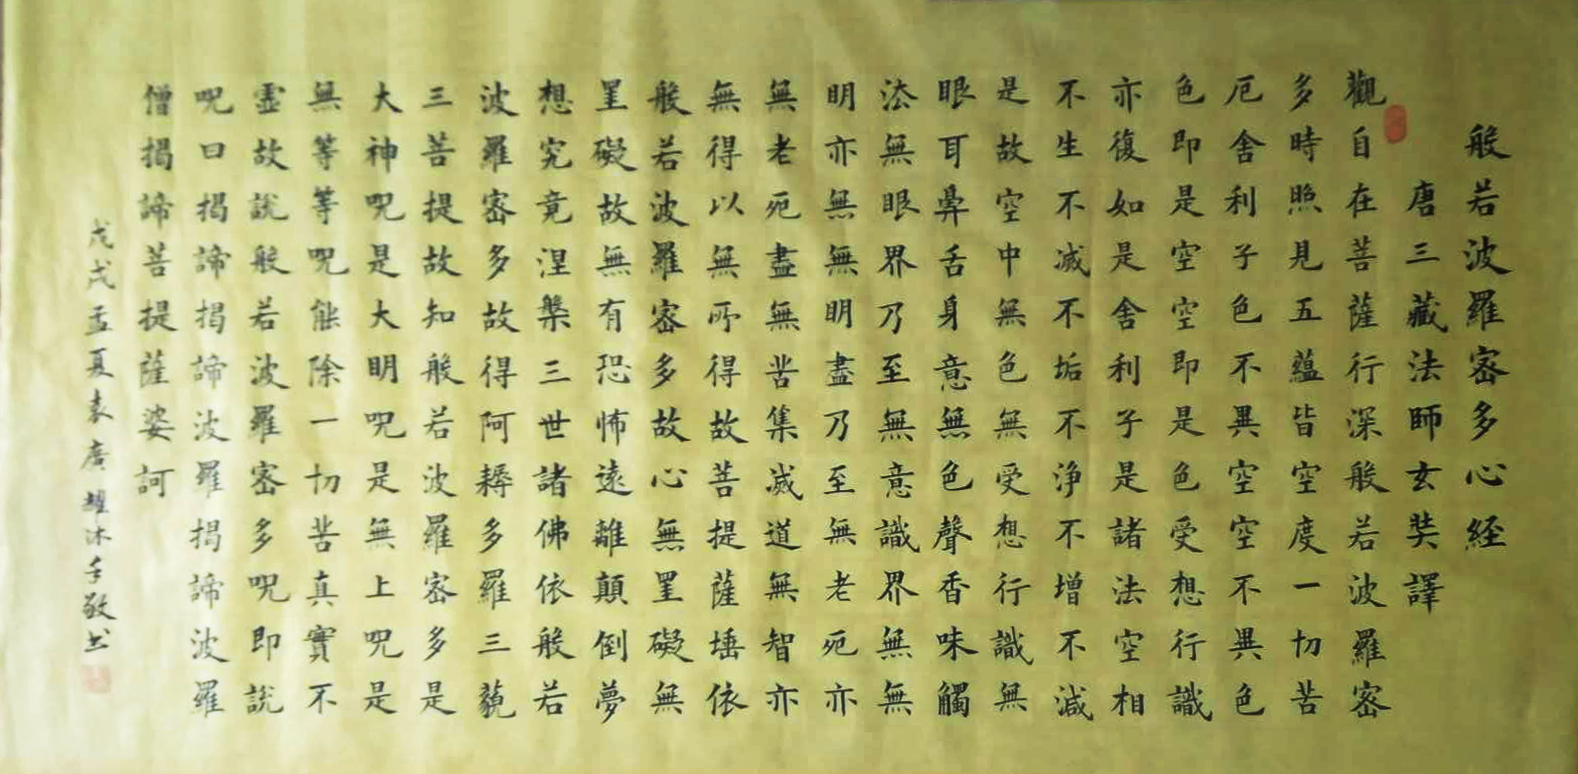 般若波羅密多心経
唐三藏法師玄奘譯
觀自在菩薩行深般若波羅密
多時照見五蘊皆空度一切苦
厄舍利子色不異空空不異色
色即是空空即是色受想行識
亦復如是舍利子是諸法空相
不生不滅不垢不淨不增不減
是故空中無色無受想行識無
眼耳鼻舌身意無色聲香味觸
法無眼界乃至無意識界無無
明亦無無明盡乃至無老死亦
無老死盡無苦集滅道無智亦
無得以無所得故菩提薩埵依
般若波羅密多故心無罣礙無
罣礙故無有恐怖遠離顛倒夢
想究竟涅槃三世諸佛依般若
波羅密多故得阿耨多羅三藐
三菩提故知般若波羅密多是
大神咒是大明咒是無上咒是
無等等咒能除一切苦真實不
靈故說般若波羅密多咒即說
咒曰揭諦揭諦波羅揭諦波羅
僧揭諦菩提薩婆訶
戊戌孟夏袁廣耀沐手敬书